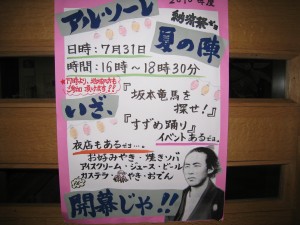 2010年度
アル・ソーレ
納涼祭だヨ
夏の陣
日時：7月31日
時間：16時〜18時30分
いざ、
『坂本竜馬を
探せ！』
『すずめ踊り』
イベントあるヨ。
夜店もあるヨ…。
お好みやき・焼きソバ
アイスクリーム・ジュース・ビール
カステラ・やき・おでん
開幕じゃ!!